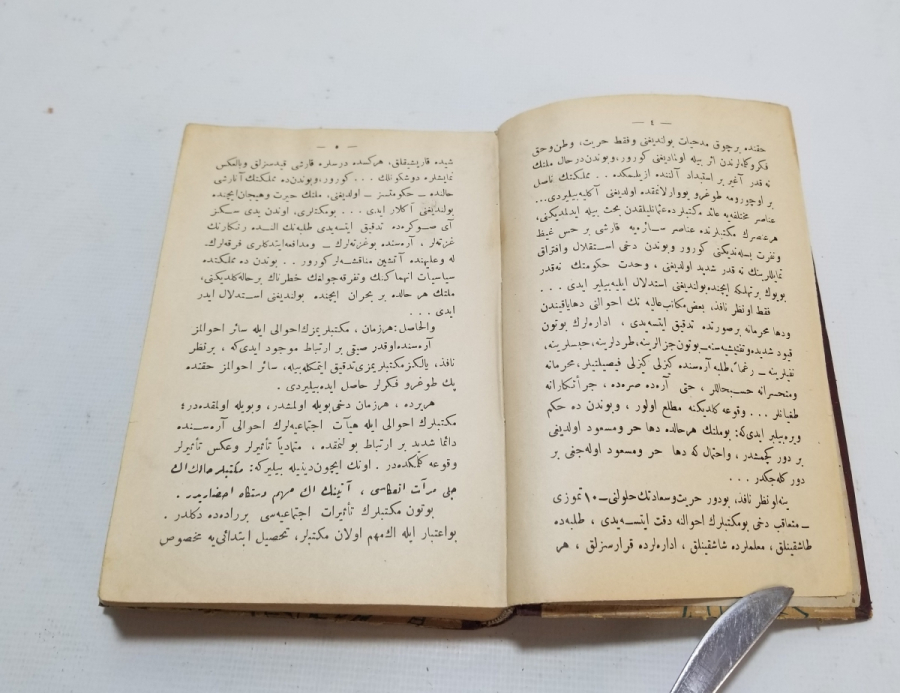 — ٤ —
حقنده برچوق مدحیات بولندیغنی وفقط حریت، وطن وحق
فکروکله‌لرندن اثر بیله اونادیغنی کورور، وبوندن درحال ملتك
نه قدر آغیر بر استبداد آلتنده ازیلمکده .. مملکتك ناصل
بر اوچورومه طوغرو یووارلانمقده اولدیغنی آکلایه‌بیلیردی...
عناصر مختلفه‌یه عائد مکتبلرده عثمانلیلقدن بحث بیله ایدلمدیکنی،
هر عنصرك مکتبلرنده عناصر سائره‌یه قارشی بر حس غیظ
ونفرت بسله‌ندیکنی کورور وبوندن دخی استقلال وافتراق
تمایللرینك نه قدر شدید اولدیغی ، وحدت حکومتك نه‌قدر
بویوك بر تهلکه ایچنده بولندیغنی استدلال ایلیه‌بیلیر ایدی ...
فقط او نظر نافذ، بعض مکاتب عالیه نك احوالنی دها یاقیندن
ودها محرمانه بر صورتده تدقیق ایتسه‌یدی ، اداره‌لرك بوتون
قیود شدیده وتفتیشیه‌سنه ـ بوتون جزالرینه، طردلرینه، حبسلرینه،
نفیلرینه ـ رغماً، طلبه آره‌سنده کیزلی کیزلی فیصلتیلر، محرمانه
ومتحسرانه حسبحاللر ، حتی آره‌ده صره‌ده ، جرأتکارانه
طغیانلر ... وقوعه کلدیکنه مطلع اولور ، وبوندن ده حکم
ویره‌بیلیر ایدی که: بوملتك هر حالده دها حر ومسعود اولدیغی
بر دور کچمشدر ، واحتمال که دها حر ومسعود اوله‌جغی بر
دور کله‌جکدر ...
ینه او نظر نافذ، بودور حریت وسعادتك حلولنی ـ ١٠ تموزی
ـ متعاقب دخی بومکتبلرك احوالنه دقت ایتسه‌یدی ، طلبه‌ده
طاشقینلق ، معلملرده شاشقینلق ، اداره‌لرده قرارسزلق ، هر
— ٥ —
شیده قاریشیقلق، هرکسده درسلره قارشی قیدسزلق وبالعکس
نمایشلره دوشکونلك ... کورور، وبوندن ده مملکتك آنارشی
حالنده ـ حکومتسز ـ اولدیغنی، ملتك حیرت وهیجان ایچنده
بولندیغنی آکلار ایدی ... بومکتبلری، اوندن یدی سکز
آی صوکره‌ده تدقیق ایتسه‌یدی طلبه‌نك النده رنکارنك
غزته‌لر ، آره‌سنده بوغزته‌لرك ـ ومدافعه ایتدکلری فرقه‌لرك
له وعلیهنده آتشین مناقشه‌لر کورور .. بوندن ده مملکتده
سیاسیات انهماکنك وتفرقه‌جولغك خطرناك برحاله کلدیکنی،
ملتك هر حالده بر بحران ایچنده بولندیغنی استدلال ایدر
ایدی ...
والحاصل: هر زمان ، مکتبلریمزك احوالی ایله سائر احوالمز
آره‌سنده اوقدر صیقی بر ارتباط موجود ایدی که ، بر نظر
نافذ، یالکز مکتبلریمزی تدقیق ایتمکله بیله، سائر احوالمز حقنده
پك طوغرو فکرلر حاصل ایده‌بیلیردی .
هریرده ، هر زمان دخی بویله اولمشدر، وبویله اولمقده‌در؛
مکتبلرك احوالی ایله هیأت اجتماعیه‌لرك احوالی آره‌سنده
دائما شدید بر ارتباط بولنمقده ، متمادیاً تأثیرلر وعکس تأثیرلر
وقوعه کلمکده‌در . اونك ایچون دینیله بیلیرکه: مکتبلر حالك اك
جلی مرآت انعکاسی ، آتینك اك مهم دستگاه احضاریدر .
بوتون مکتبلرك تأثیرات اجتماعیه‌سی بر راده‌ده دکلدر .
بو اعتبار ایله اك مهم اولان مکتبلر، تحصیل ابتدائی‌یه مخصوص